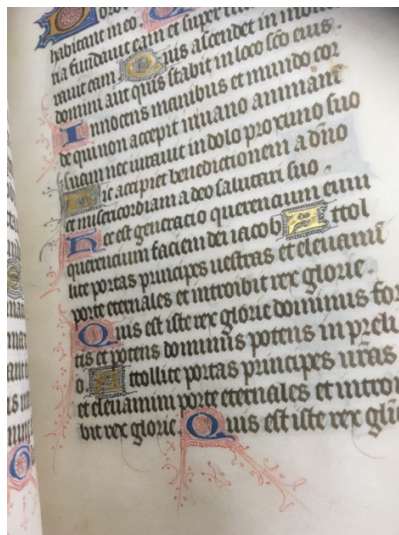 habitant in eo
ria fundauit eam et super
rauit eam Quis ascendet in mon
domini aut quis stabit in loco sco eius.
Innocens manibus et mundo cor
de qui non accepit in uano animam
suam nec iurauit in dolo proximo suo
Hic accipiet benedictionem a dno
et misericordiam a deo salutari suo.
Hec est generacio querencium eum
querencium faciem dei iacob Attol
lite portas principes uestras et eleuamini
porte eternales et introibit rex glorie.
Quis est iste rex glorie dominus for
tis et potens dominus potens in preli
o Attollite portas principes uras
et eleuamini porte eternales et introi
bit rex glorie. Quis est iste rex glo